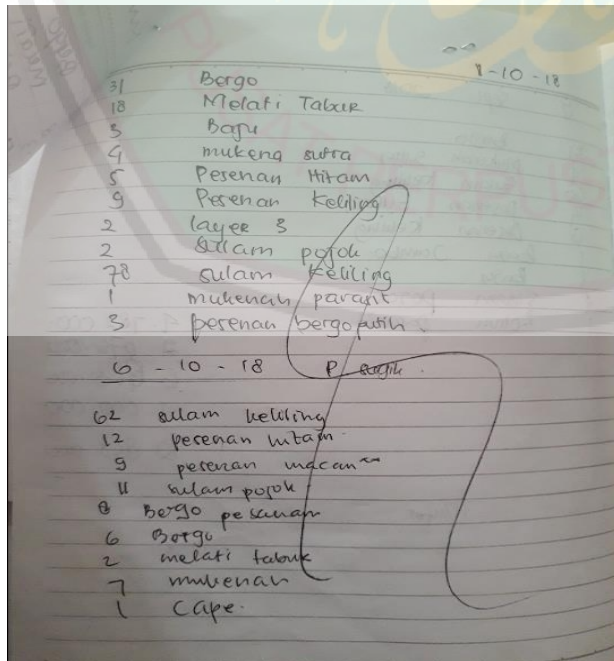 1-10-18
31 Bergo
18 Melati Tabur
3 Baju
4 mukena sutra
5 Pesenan Hitam
9 Pesenan Keliling
2 layer 3
2 Sulam pojok
78 sulam keliling
1 mukenah parasit
3 pesenan bergo putih
6 - 10 - 18 P
62 sulam keliling
12 pesenan hitam
9 pesenan macan
11 sulam pojok
8 Bergo pesanan
6 Bergo
2 melati tabur
7 mukenah
1 Cape.